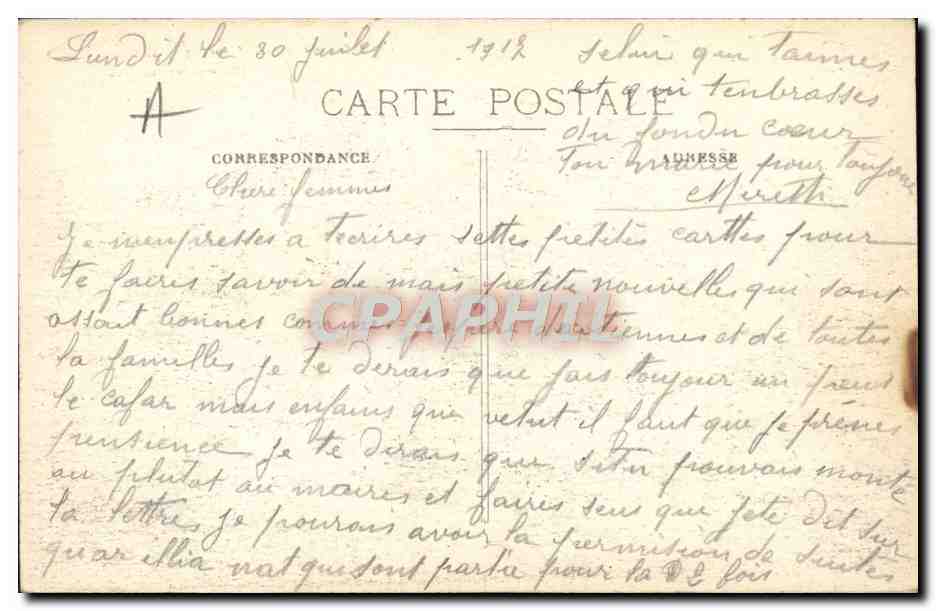 Lundit le 30 juilet 1912
A
CARTE POSTALE
CORRESPONDANCE
ADRESSE
Chere femmes
Je menpresses a tecrires settes petites carttes pour
te faires savoir de mais petite nouvelles qui sont
assait bonnes commes jespere daitiennes et de toutes
la familles je te derais que jais toujour un peut
le cafar mais enfains que vetut il faut que je prenes
pensience je te dirais que situ pouvais monte
au plutot au maires et faires seus que jete dit sur
ta lettres je pourais avoir la permision de suites
quar illia nat qui sont partie pour la 2 fois
selui qui taimes
et qui tenbrasses
du fondu coeur
ton marie pour toujours
CPAPHIL